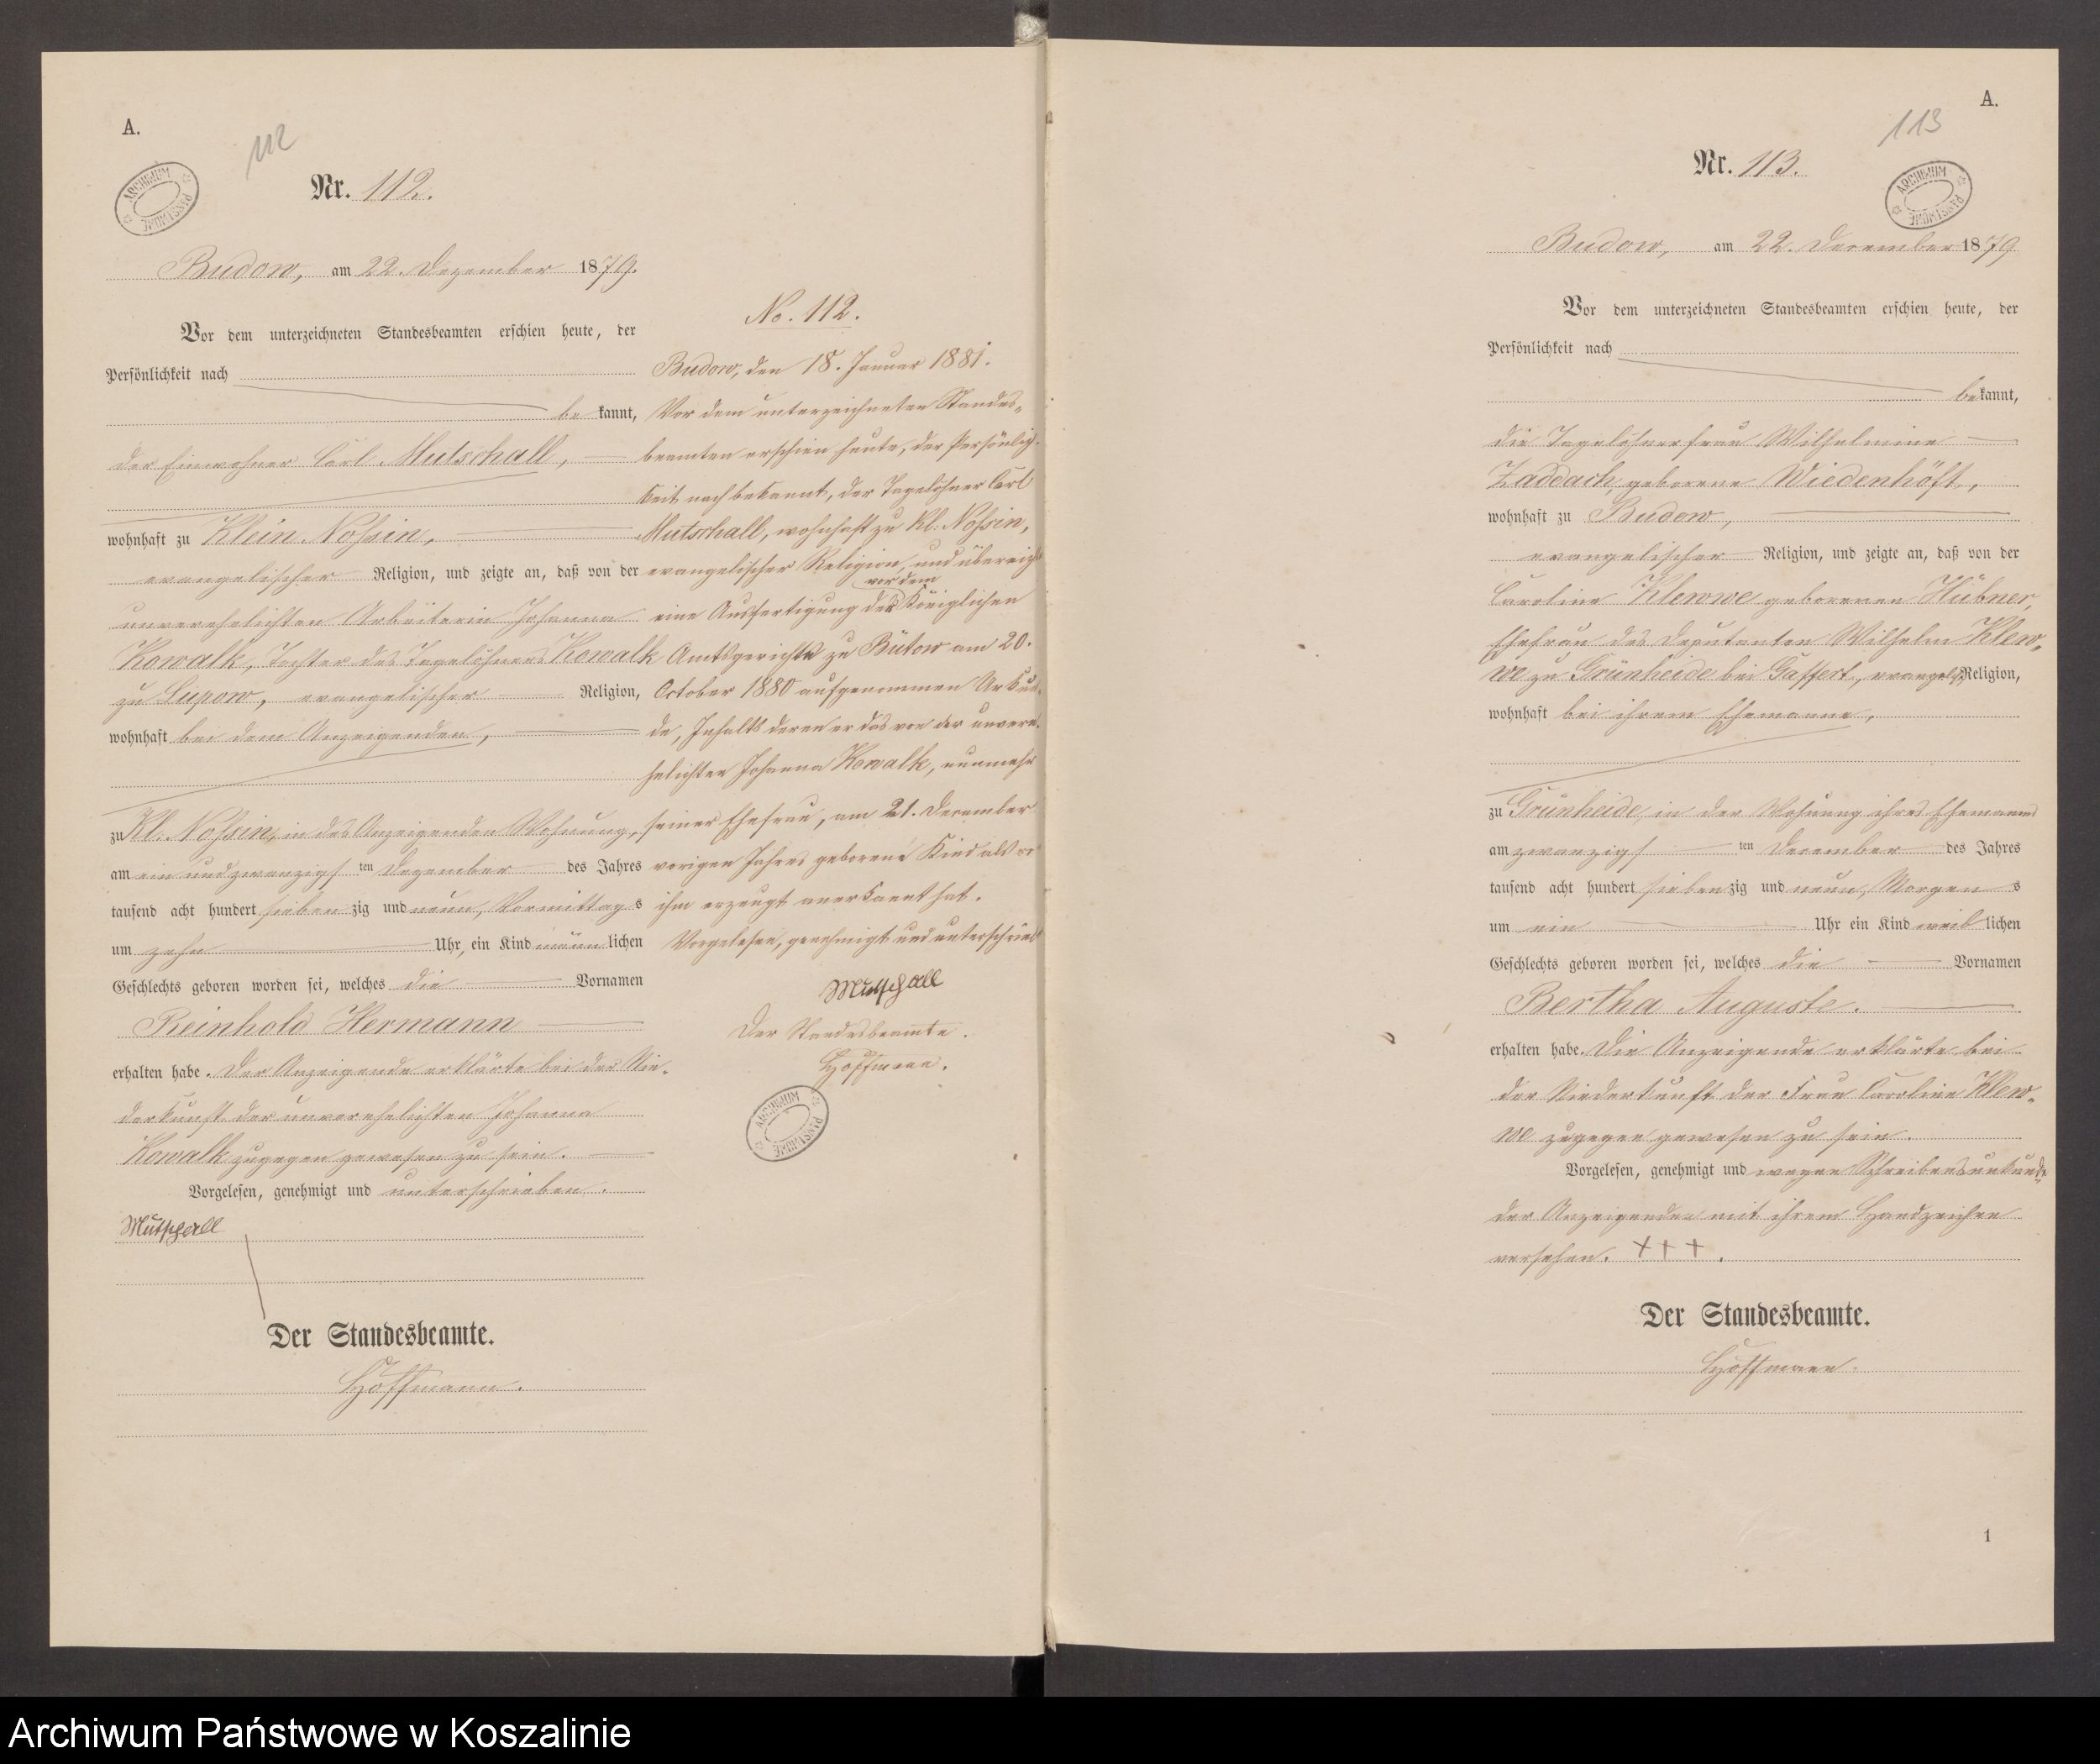 A.
112
Nr. 112.
ARCHIWUM PAŃSTWOWE
Budow, am 22. Dezember 1879.
Vor dem unterzeichneten Standesbeamten erschien heute, der
Persönlichkeit nach
be kannt,
der Einwohner Carl Mutschall,
wohnhaft zu Klein Nossin,
evangelischer Religion, und zeigte an, daß von der
unverehelichten Arbeiterin Johanna
Kowalk, Tochter des Tagelöhners Kowalk
zu Lupow, evangelischer Religion,
wohnhaft bei dem Anzeigenden,
zu Kl. Nossin, in des Anzeigenden Wohnung,
am ein und zwanzigs ten Dezember des Jahres
tausend acht hundert sieben zig und neun, Vormittag s
um zehn Uhr, ein Kind männ lichen
Geschlechts geboren worden sei, welches die Vornamen
Reinhold Hermann
erhalten habe. Der Anzeigende erklärte bei der Nie-
derkunft der unverehelichten Johanna
Kowalk zugegen gewesen zu sein.
Vorgelesen, genehmigt und unterschrieben.
Mutschall
Der Standesbeamte.
Hoffmann.
No. 112.
Budow, den 18. Januar 1881.
Vor dem unterzeichneten Standes-
beamten erschien heute, der Persönlich-
keit nach bekannt, der Tagelöhner Carl
Mutschall, wohnhaft zu Kl. Nossin,
evangelischer Religion, und übereicht
vor dem
eine Ausfertigung der Königlichen
Amtsgericht zu Bütow am 20.
October 1880 aufgenommen Urkun-
de, Inhalts deren er das von der unvere-
helichten Johanna Kowalk, nunmehr
seiner Ehefrau, am 21. December
vorigen Jahres geborene Kind als von
ihm erzeugt anerkannt hat.
Vorgelesen, genehmigt und unterschrieb
Mutschall
Der Standesbeamte.
Hoffmann.
ARCHIWUM PAŃSTWOWE
A.
113
Nr. 113.
ARCHIWUM PAŃSTWOWE
Budow, am 22. December 1879
Vor dem unterzeichneten Standesbeamten erschien heute, der
Persönlichkeit nach
be kannt,
die Tagelöhnerfrau Wilhelmine
Zaddach, geborene Wiedenhöft,
wohnhaft zu Budow,
evangelischer Religion, und zeigte an, daß von der
Caroline Klewwe geborenen Hübner,
Ehefrau des Deputanten Wilhelm Klew-
we zu Grünheide bei Gaffert, evangel. Religion,
wohnhaft bei ihrem Ehemanne,
zu Grünheide, in der Wohnung ihres Ehemannes
am zwanzigs ten December des Jahres
tausend acht hundert sieben zig und neun, Morgen s
um ein Uhr ein Kind weib lichen
Geschlechts geboren worden sei, welches die Vornamen
Bertha Auguste.
erhalten habe. Die Anzeigende erklärte bei
der Niederkunft der Frau Caroline Klew-
we zugegen gewesen zu sein.
Vorgelesen, genehmigt und wegen Schreibensunkunde
der Anzeigenden mit ihrem Handzeichen
versehen. +++.
Der Standesbeamte.
Hoffmann.
1
Archiwum Państwowe w Koszalinie